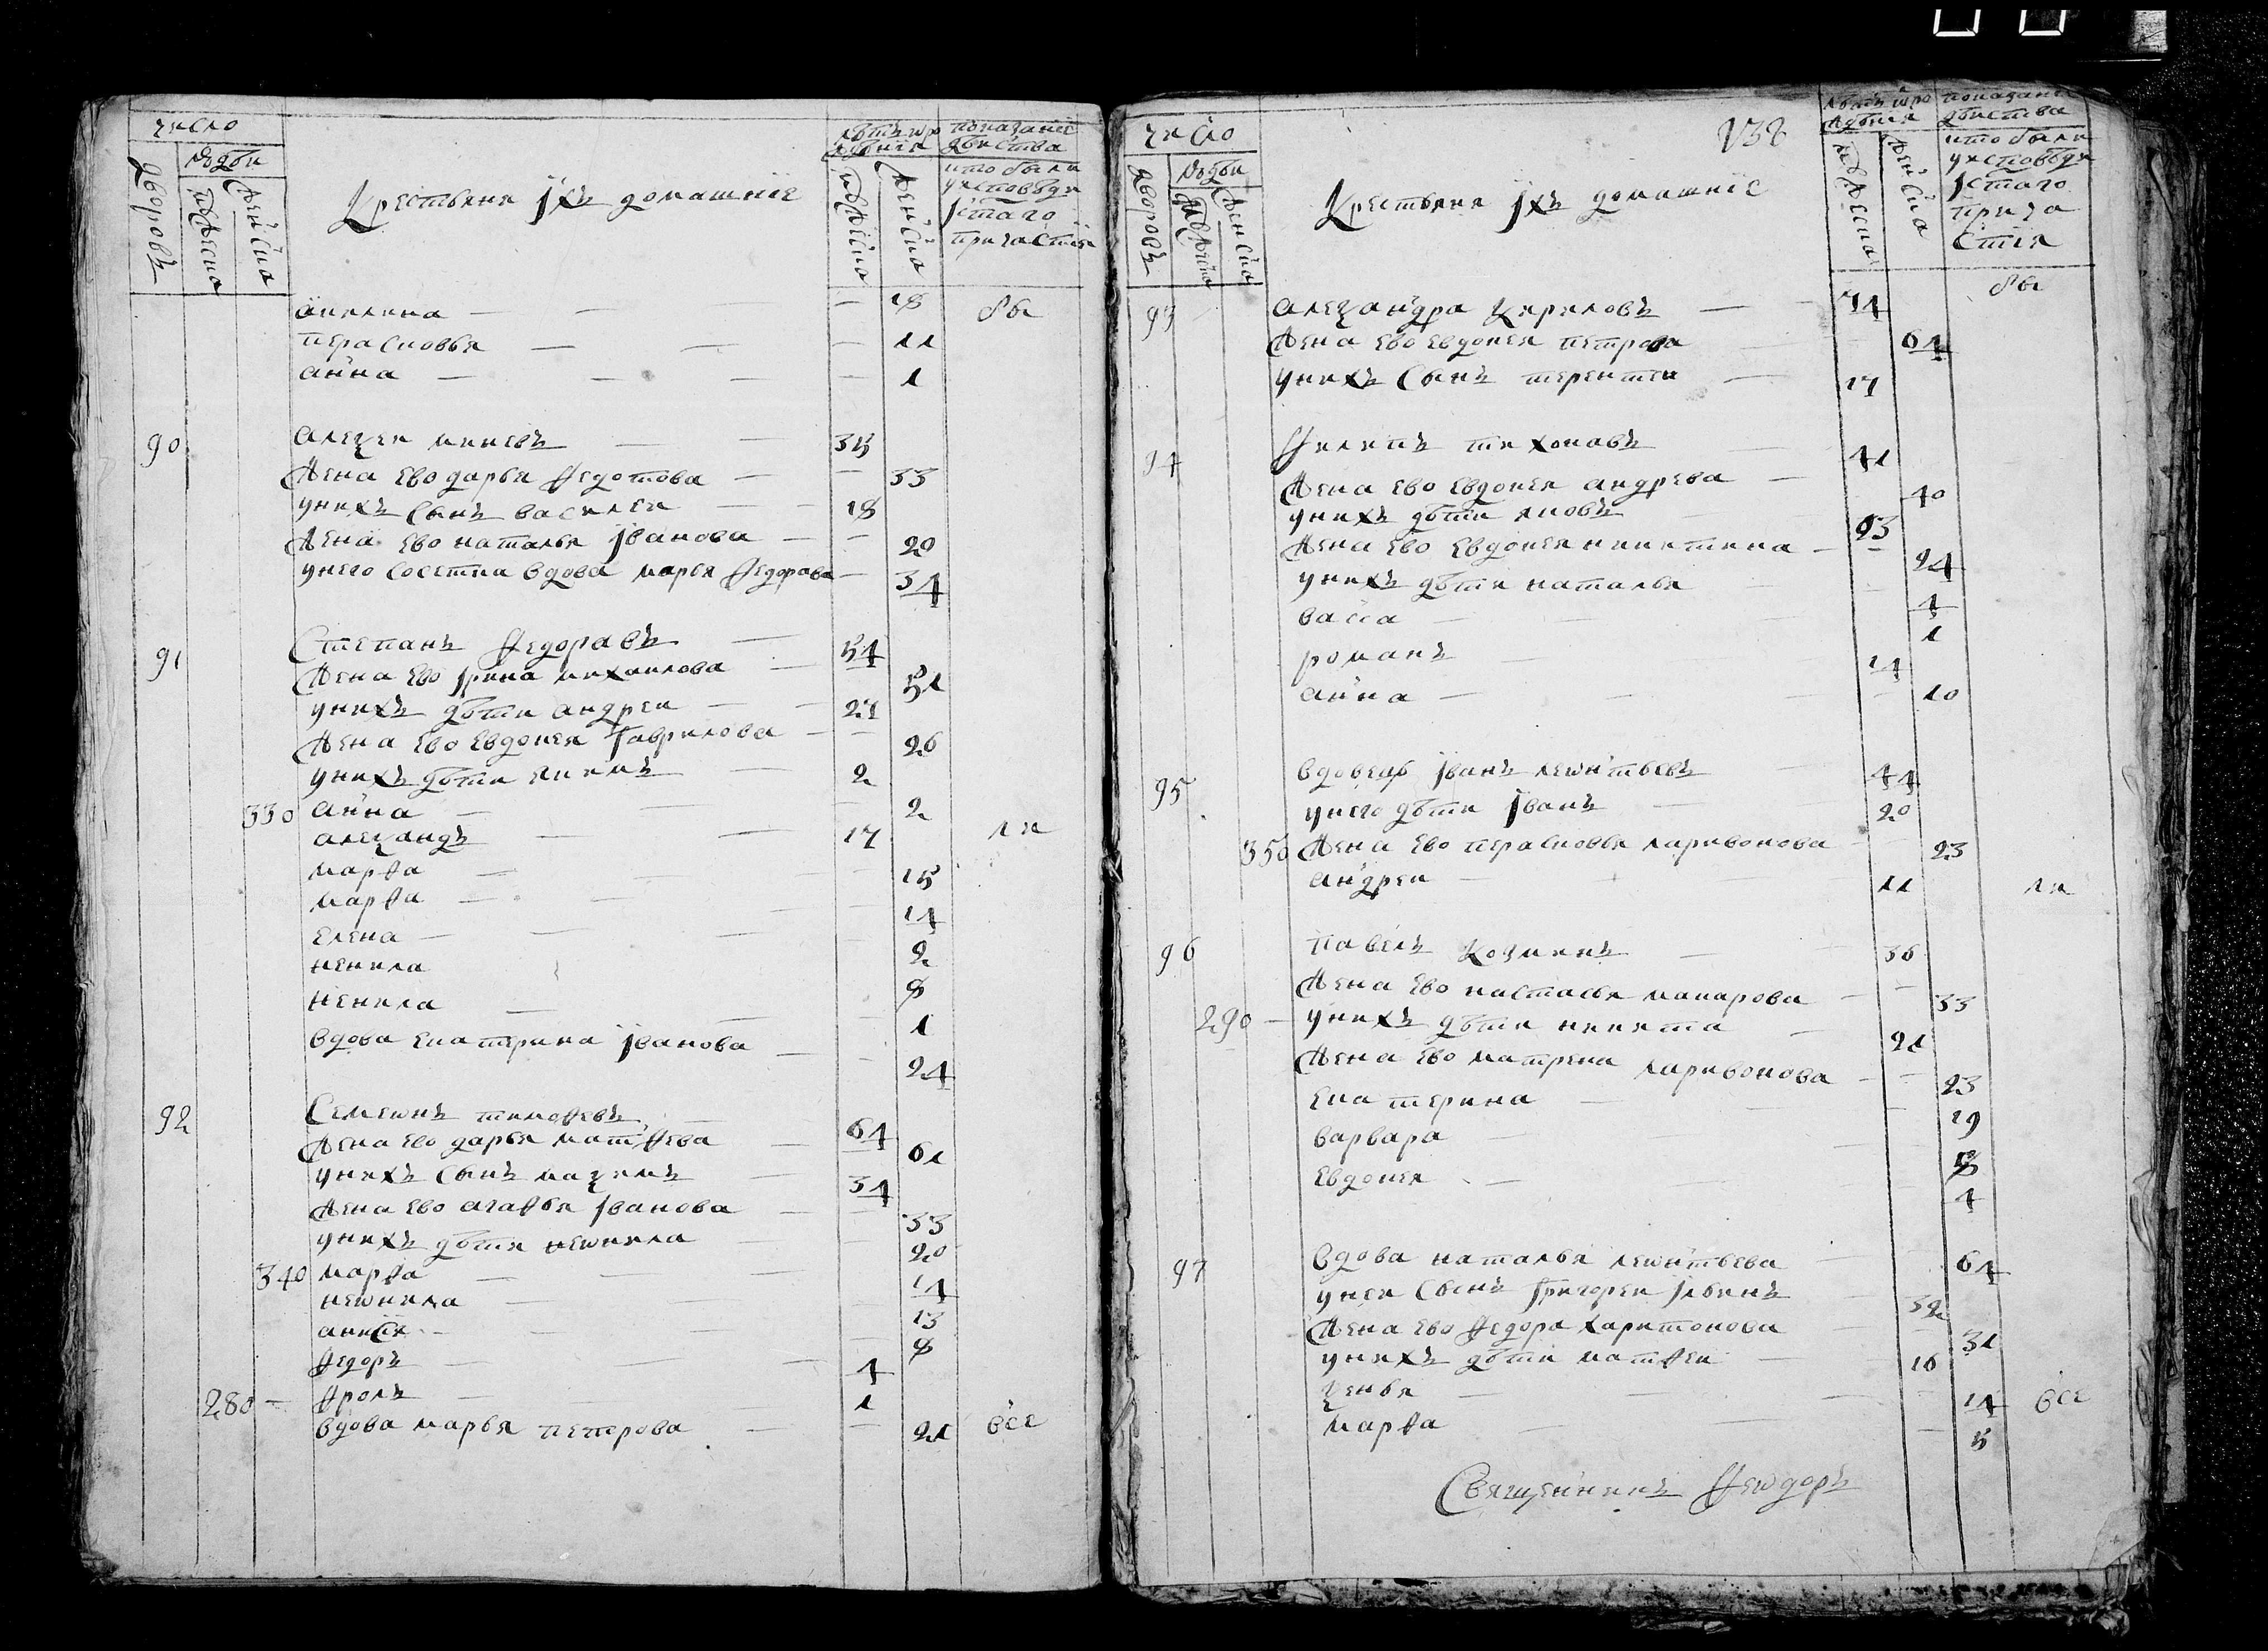 число
людеи
дворовъ
мужеска
женска
Крестьяне їхъ домашние
лѣтъ от рождения
мужеска
женска
показание действа
кто были у исповеди ї стаго причастия
акилина — — — 18 бы
перасковья — — — 11
анна — — — 1
90 алеѯеи минеевъ — — 35
жена ево дарья ѳедотова — — 33
у нихъ сынъ василеи — — 18
жена ево наталья їванова — — 20
у него соседка вдова марья ѳедорова — 34
91 Степанъ ѳедоравъ — 54
жена ево їрина михаилова — 51
у нихъ дѣти андреи — — 27
жена ево евдокея гаврилова — — 26
у нихъ дѣти екимъ — 2
330 анна — — — 2
алеѯандъ — — 17 ли
марѳа — — — 15
марѳа — — — 14
елена — — — 2
ненила 8
ненила — — — 1
вдова екатерина їванова — — 24
92 Семеѡнъ тимоѳевъ — 64
жена ево дарья матѳева — 61
у нихъ сынъ маѯимъ — 34
жена ево агаѳья їванова — — 33
у нихъ дѣти неѡнила — — 20
340 марѳа — — — 14
неѡнила — — — 13
анисья — — — 8
ѳедоръ — — — 4
280 — ѳролъ — — 1
вдова марья петрова — — 21 все
число
людеи
дворовъ
мужеска
женска
Крестьяне їхъ домашние
138
лѣтъ от рождения
мужеска
женска
показание действа
кто были у исповеди ї стаго причастия
бы
93 алеѯандра кириловъ — 71
жена ево евдокея петрова — 64
у нихъ сынъ терентеи — 17
94 ѳилипъ тихонавъ — 41
жена ево евдокея андрева — 40
у нихъ дѣти яковъ — 23
жена ево евдокея никитина — 24
у нихъ дѣти наталья — 4
васса — — 1
романъ — — 14
анна — — — 10
95 вдовецъ їванъ леѡнтьевъ — 44
у него дѣти їванъ — 20
350 жена ево перасковья ларивонова — — 23
андреи — — 11 ли
96 павелъ козминъ — 36
жена ево настасья макарова — — 33
290 — у нихъ дѣти никита — 21
жена ево матрена ларивонова — — 23
екатерина — — — 19
варвара — — —
евдокея — — — 4
97 вдова наталья леѡнтьева — 64
у неи сынъ григореи їльинъ — 32
жена ево ѳедора харитонова — 31
у нихъ дѣти матѳеи — 16
ѯенья — — — 14 все
марѳа — — — 5
Священникъ Ѳеѡдоръ